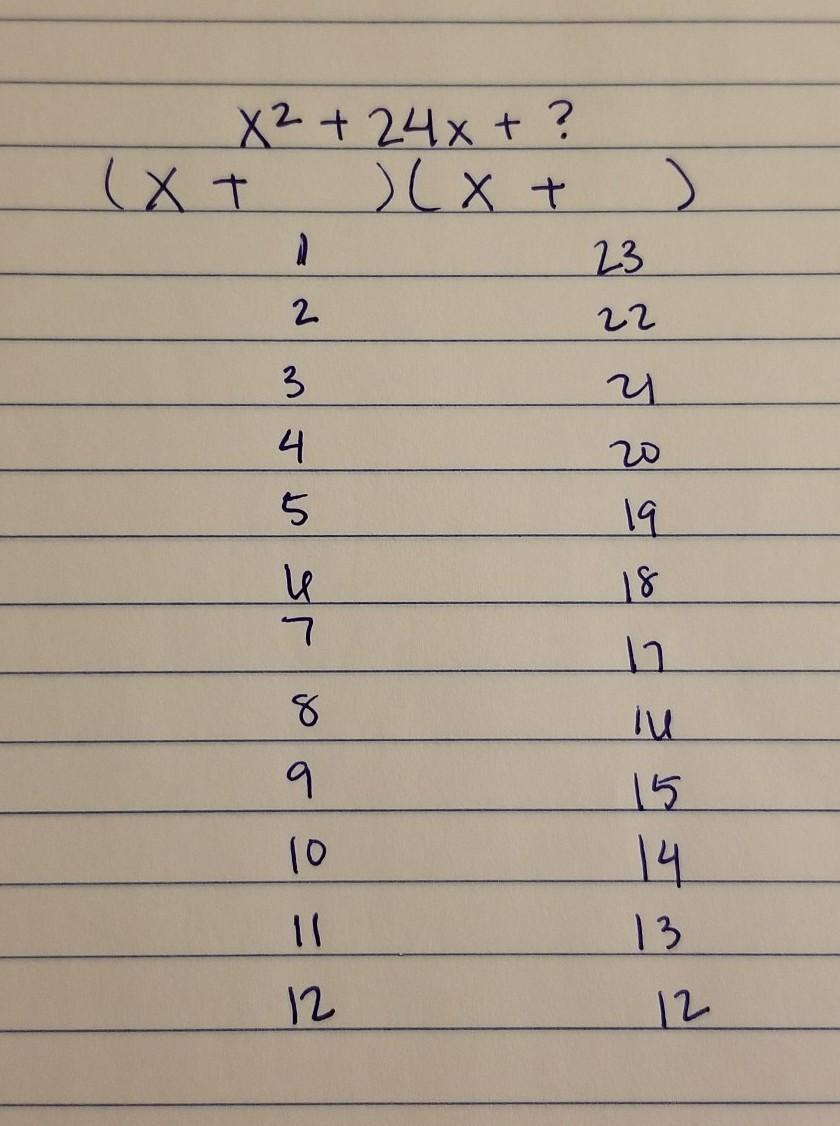 x² + 24x + ?
(x + )(x + )
1 23
2 22
3 21
4 20
5 19
6 18
7 17
8 16
9 15
10 14
11 13
12 12